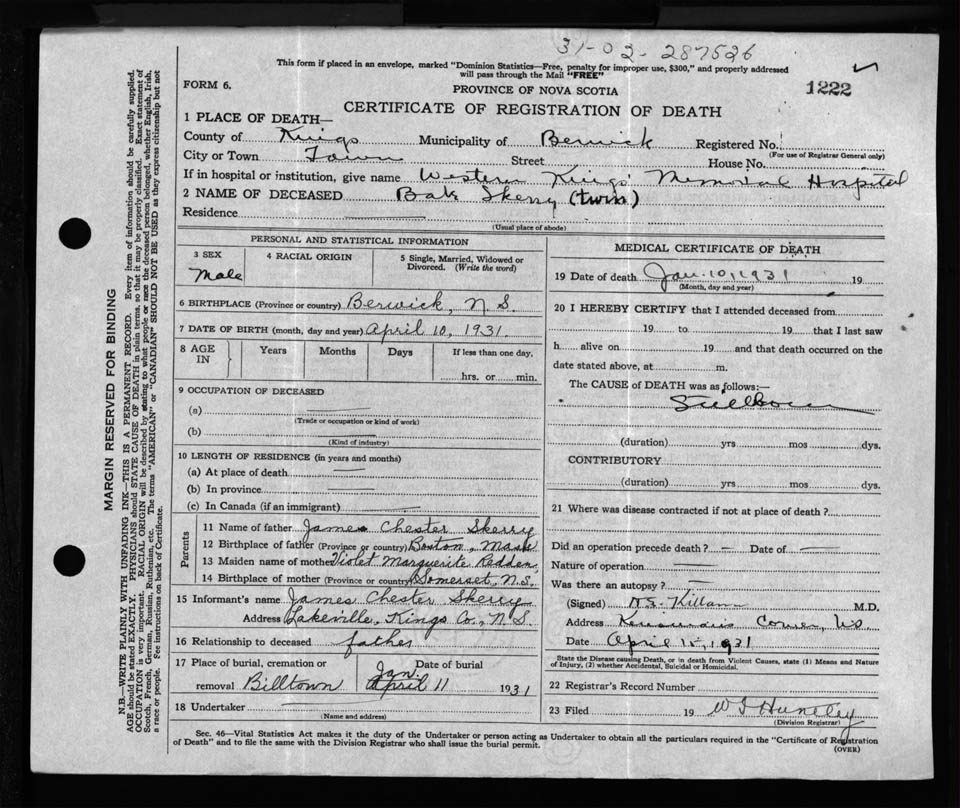 31-02-287526
This form if placed in an envelope, marked "Dominion Statistics—Free, penalty for improper use, $300," and properly addressed
will pass through the Mail "FREE"
FORM 6.
PROVINCE OF NOVA SCOTIA
1222
CERTIFICATE OF REGISTRATION OF DEATH
1 PLACE OF DEATH—
County of Kings Municipality of Berwick Registered No.
(For use of Registrar General only)
City or Town Town Street House No.
If in hospital or institution, give name Western Kings Memorial Hospital
2 NAME OF DECEASED Skerry (twin)
Residence
(Usual place of abode)
PERSONAL AND STATISTICAL INFORMATION
3 SEX 4 RACIAL ORIGIN 5 Single, Married, Widowed or
Divorced. (Write the word)
Male
6 BIRTHPLACE (Province or country) Berwick, N.S.
7 DATE OF BIRTH (month, day and year) April 10, 1931.
8 AGE IN Years Months Days If less than one day,
hrs. or min.
9 OCCUPATION OF DECEASED
(a)
(Trade or occupation or kind of work)
(b)
(Kind of industry)
10 LENGTH OF RESIDENCE (in years and months)
(a) At place of death
(b) In province
(c) In Canada (if an immigrant)
Parents
11 Name of father James Chester Skerry
12 Birthplace of father (Province or country) Boston, Mass
13 Maiden name of mother Violet Marguerite Redden
14 Birthplace of mother (Province or country) Somerset, N.S.
15 Informant's name James Chester Skerry
Address Lakeville, Kings Co., N.S.
16 Relationship to deceased father
17 Place of burial, cremation or Date of burial
Jan.
removal Billtown April 11 1931
18 Undertaker
(Name and address)
MEDICAL CERTIFICATE OF DEATH
19 Date of death Jan. 10, 1931 19
(Month, day and year)
20 I HEREBY CERTIFY that I attended deceased from
19 to 19 that I last saw
h alive on 19 and that death occurred on the
date stated above, at m.
The CAUSE of DEATH was as follows:—
Stillborn
(duration) yrs mos dys.
CONTRIBUTORY
(duration) yrs mos dys.
21 Where was disease contracted if not at place of death?
Did an operation precede death? Date of
Nature of operation
Was there an autopsy?
(Signed) Killam M.D.
Address Corner, N.S.
Date April 15, 1931
State the Disease causing Death, or in death from Violent Causes, state (1) Means and Nature
of Injury, (2) whether Accidental, Suicidal or Homicidal.
22 Registrar's Record Number
23 Filed 19 Huntley
(Division Registrar)
Sec. 46—Vital Statistics Act makes it the duty of the Undertaker or person acting as Undertaker to obtain all the particulars required in the "Certificate of Registration
of Death" and to file the same with the Division Registrar who shall issue the burial permit.
(OVER)
MARGIN RESERVED FOR BINDING
N.B.—WRITE PLAINLY WITH UNFADING INK—THIS IS A PERMANENT RECORD. Every item of information should be carefully supplied.
AGE should be stated EXACTLY. PHYSICIANS should STATE CAUSE OF DEATH in plain terms, so that it may be properly classified. Exact statement of
OCCUPATION is very important. RACIAL ORIGIN will be described by stating to what people or race the deceased person belonged, whether English, Irish,
Scotch, French, German, Russian, Ruthenian, etc. The terms "AMERICAN" or "CANADIAN" SHOULD NOT BE USED as they express citizenship but not
a race or people. See instructions on back of Certificate.